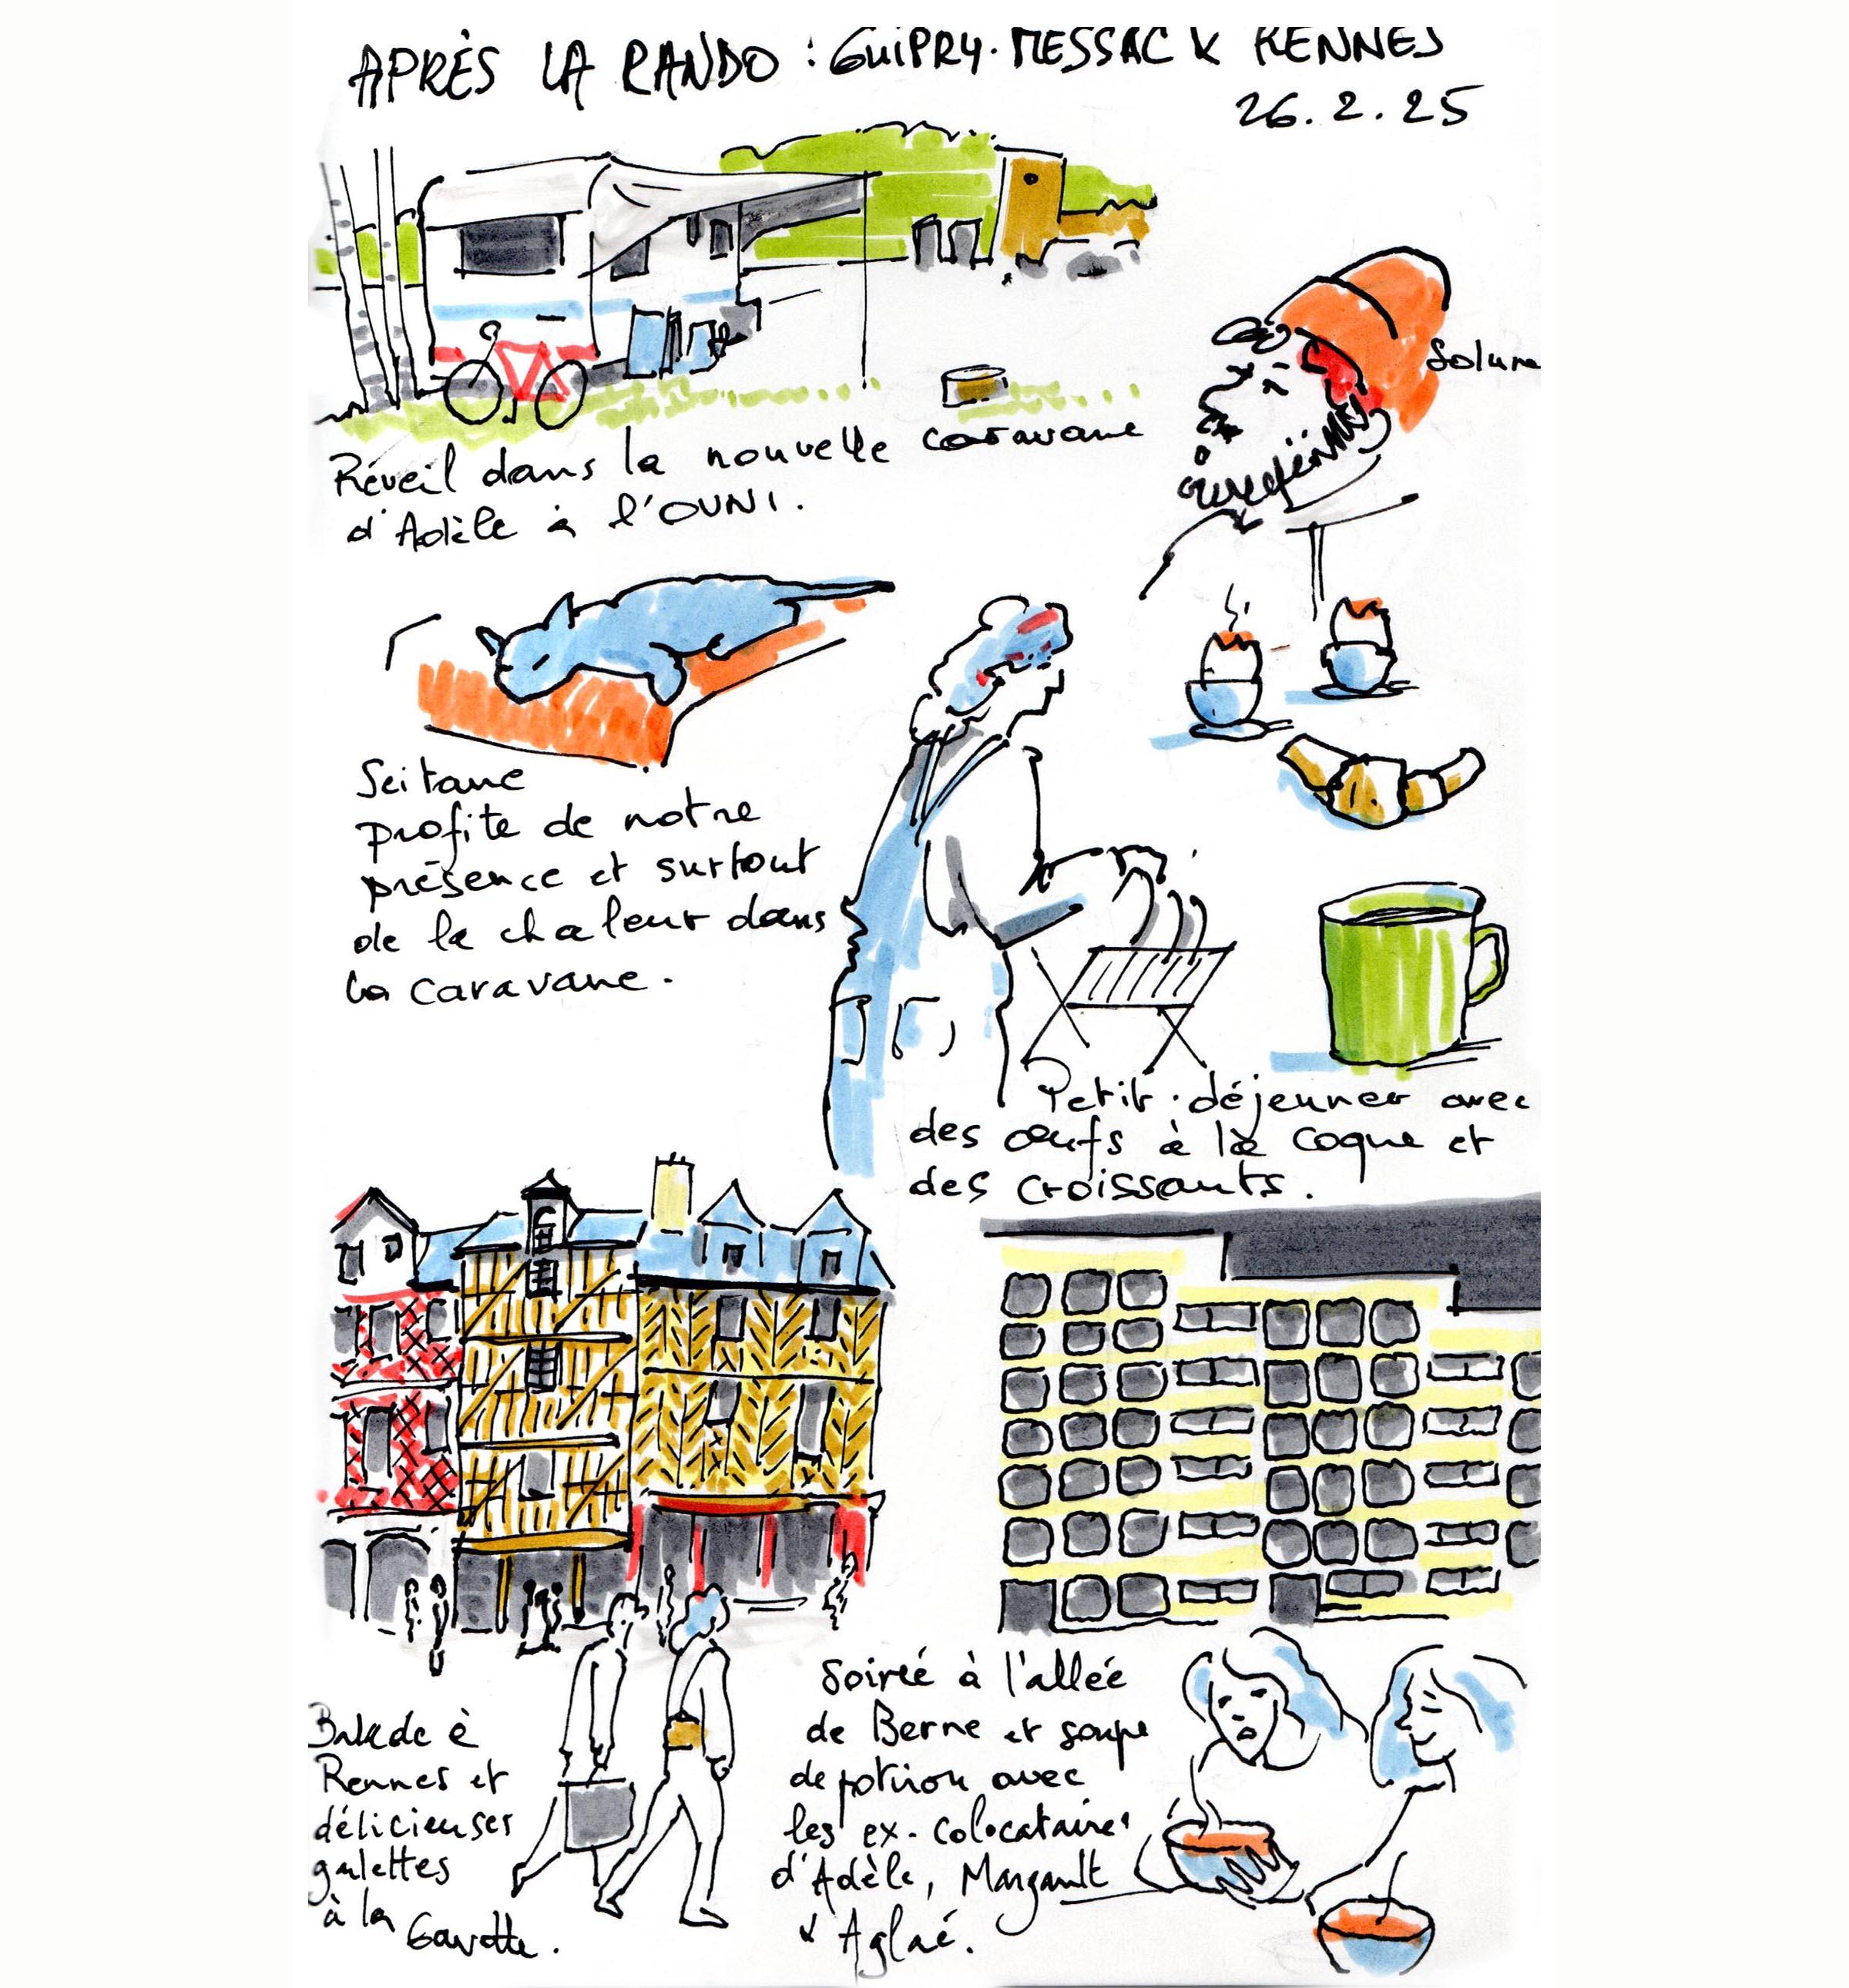 APRÈS LA RANDO : GUIPRY-MESSAC & RENNES
26.2.25
Solune
Réveil dans la nouvelle caravane
d'Adèle à l'OVNI.
Seitane
profite de notre
présence et surtout
de la chaleur dans
la caravane.
Petit-déjeuner avec
des œufs à la coque et
des croissants.
Balade à
Rennes et
délicieuses
galettes
à la Gavotte.
Soirée à l'allée
de Berne et soupe
de potiron avec
les ex-colocataires
d'Adèle, Margault
& Aglaé.